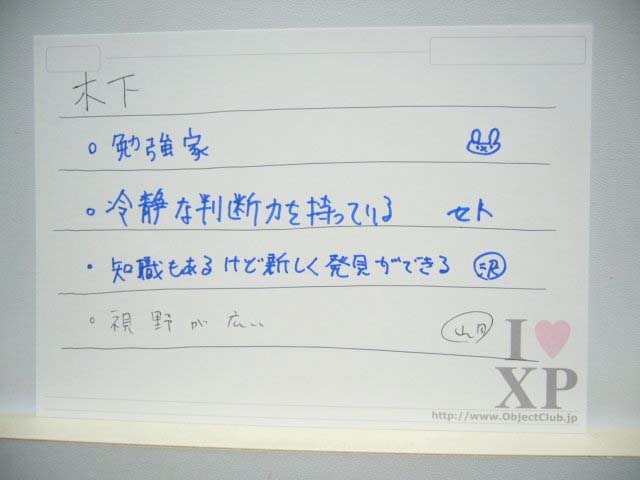 木下
。勉強家
。冷静な判断力を持っている セト
・知職もあるけど新しく発見ができる 沢
。視野が広い
I ♥ XP
http://www.ObjectClub.jp